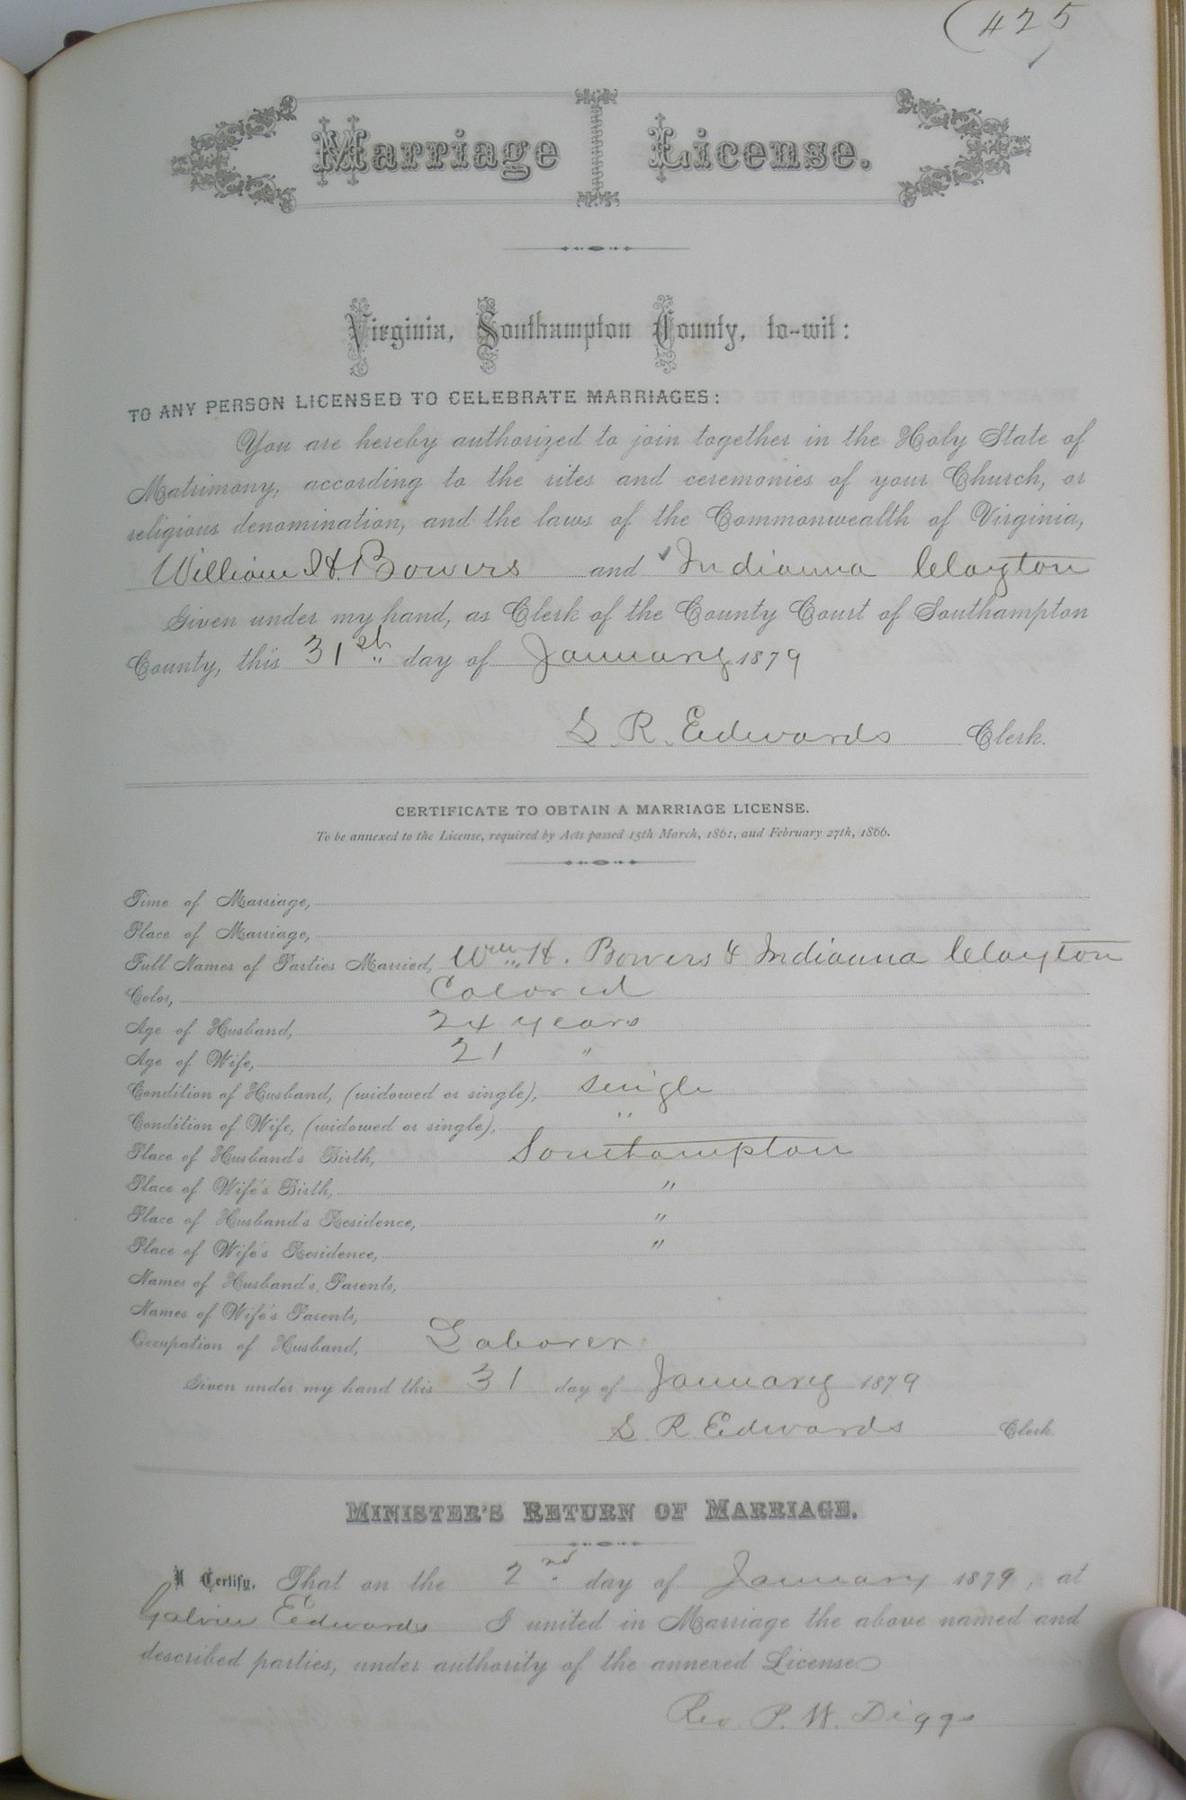 (425
Marriage License.
Virginia, Southampton County, to-wit:
TO ANY PERSON LICENSED TO CELEBRATE MARRIAGES:
You are hereby authorized to join together in the Holy State of
Matrimony, according to the rites and ceremonies of your Church, or
religious denomination, and the laws of the Commonwealth of Virginia,
William H. Bowers and Indianna Clayton
Given under my hand, as Clerk of the County Court of Southampton
County, this 31st day of January 1879
L R. Edwards Clerk.
CERTIFICATE TO OBTAIN A MARRIAGE LICENSE.
To be annexed to the License, required by Acts passed 15th March, 1861, and February 27th, 1866.
Time of Marriage,
Place of Marriage,
Full Names of Parties Married, Wm. H. Bowers & Indianna Clayton
Color, Colored
Age of Husband, 24 years
Age of Wife, 21 "
Condition of Husband, (widowed or single), Single
Condition of Wife, (widowed or single), "
Place of Husband's Birth, Southampton
Place of Wife's Birth, "
Place of Husband's Residence, "
Place of Wife's Residence, "
Names of Husband's Parents,
Names of Wife's Parents,
Occupation of Husband, Laborer
Given under my hand this 31 day of January 1879
L R Edwards Clerk
MINISTER'S RETURN OF MARRIAGE.
I Certify, That on the 2nd day of January 1879, at
Edwards I united in Marriage the above named and
described parties, under authority of the annexed License
Rev. P. W. Diggs